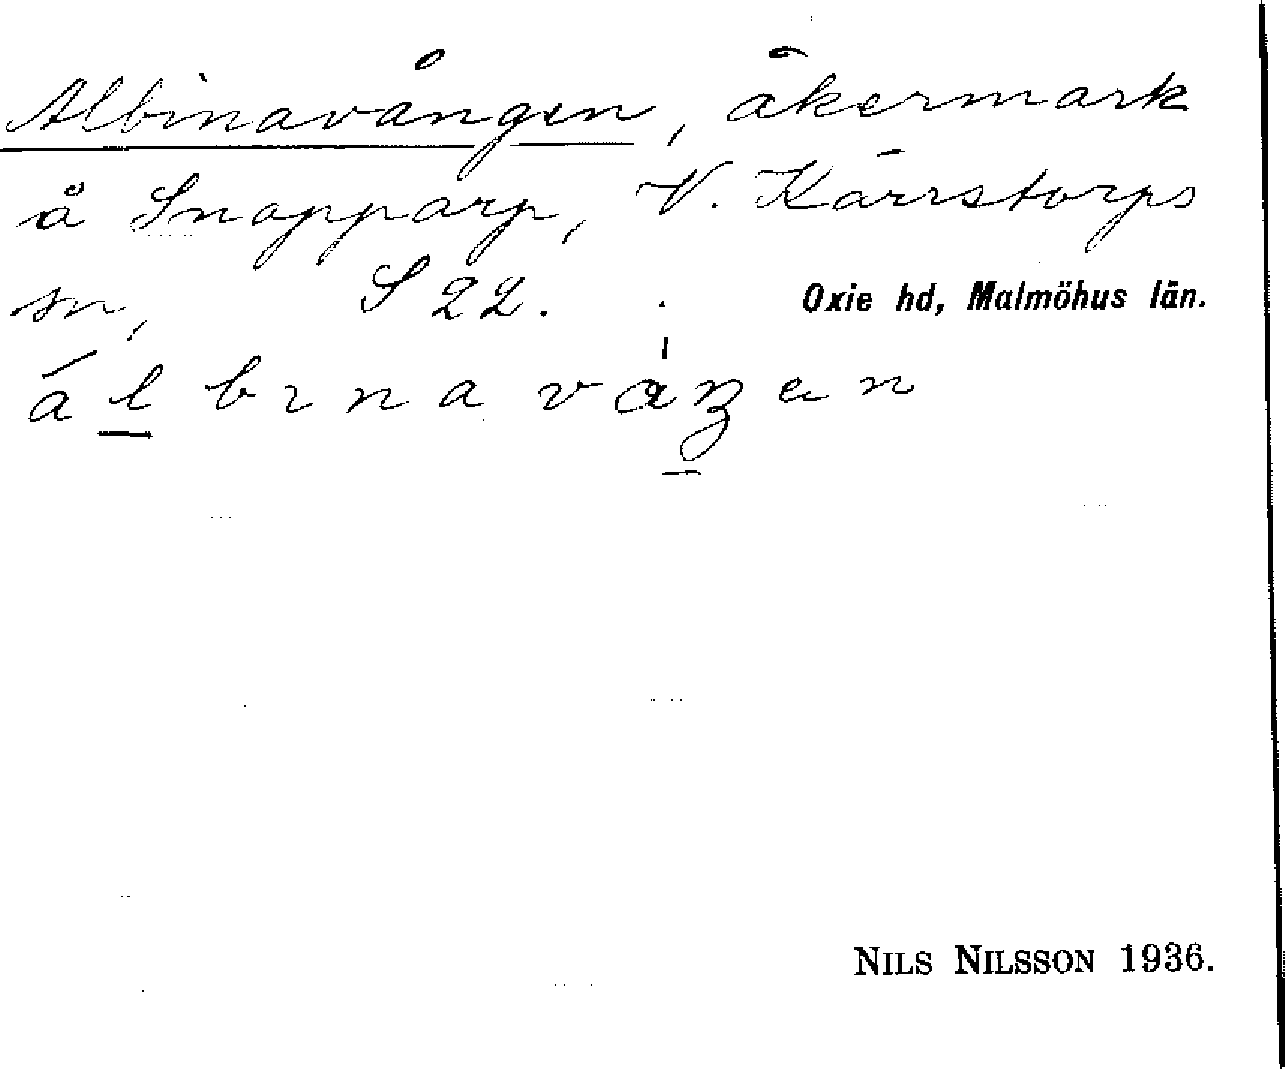 Albinavången, åkermark
å Snapparp, V. Kärrstorps
sn, S 22. Oxie hd, Malmöhus län.
NILS NILSSON 1936.